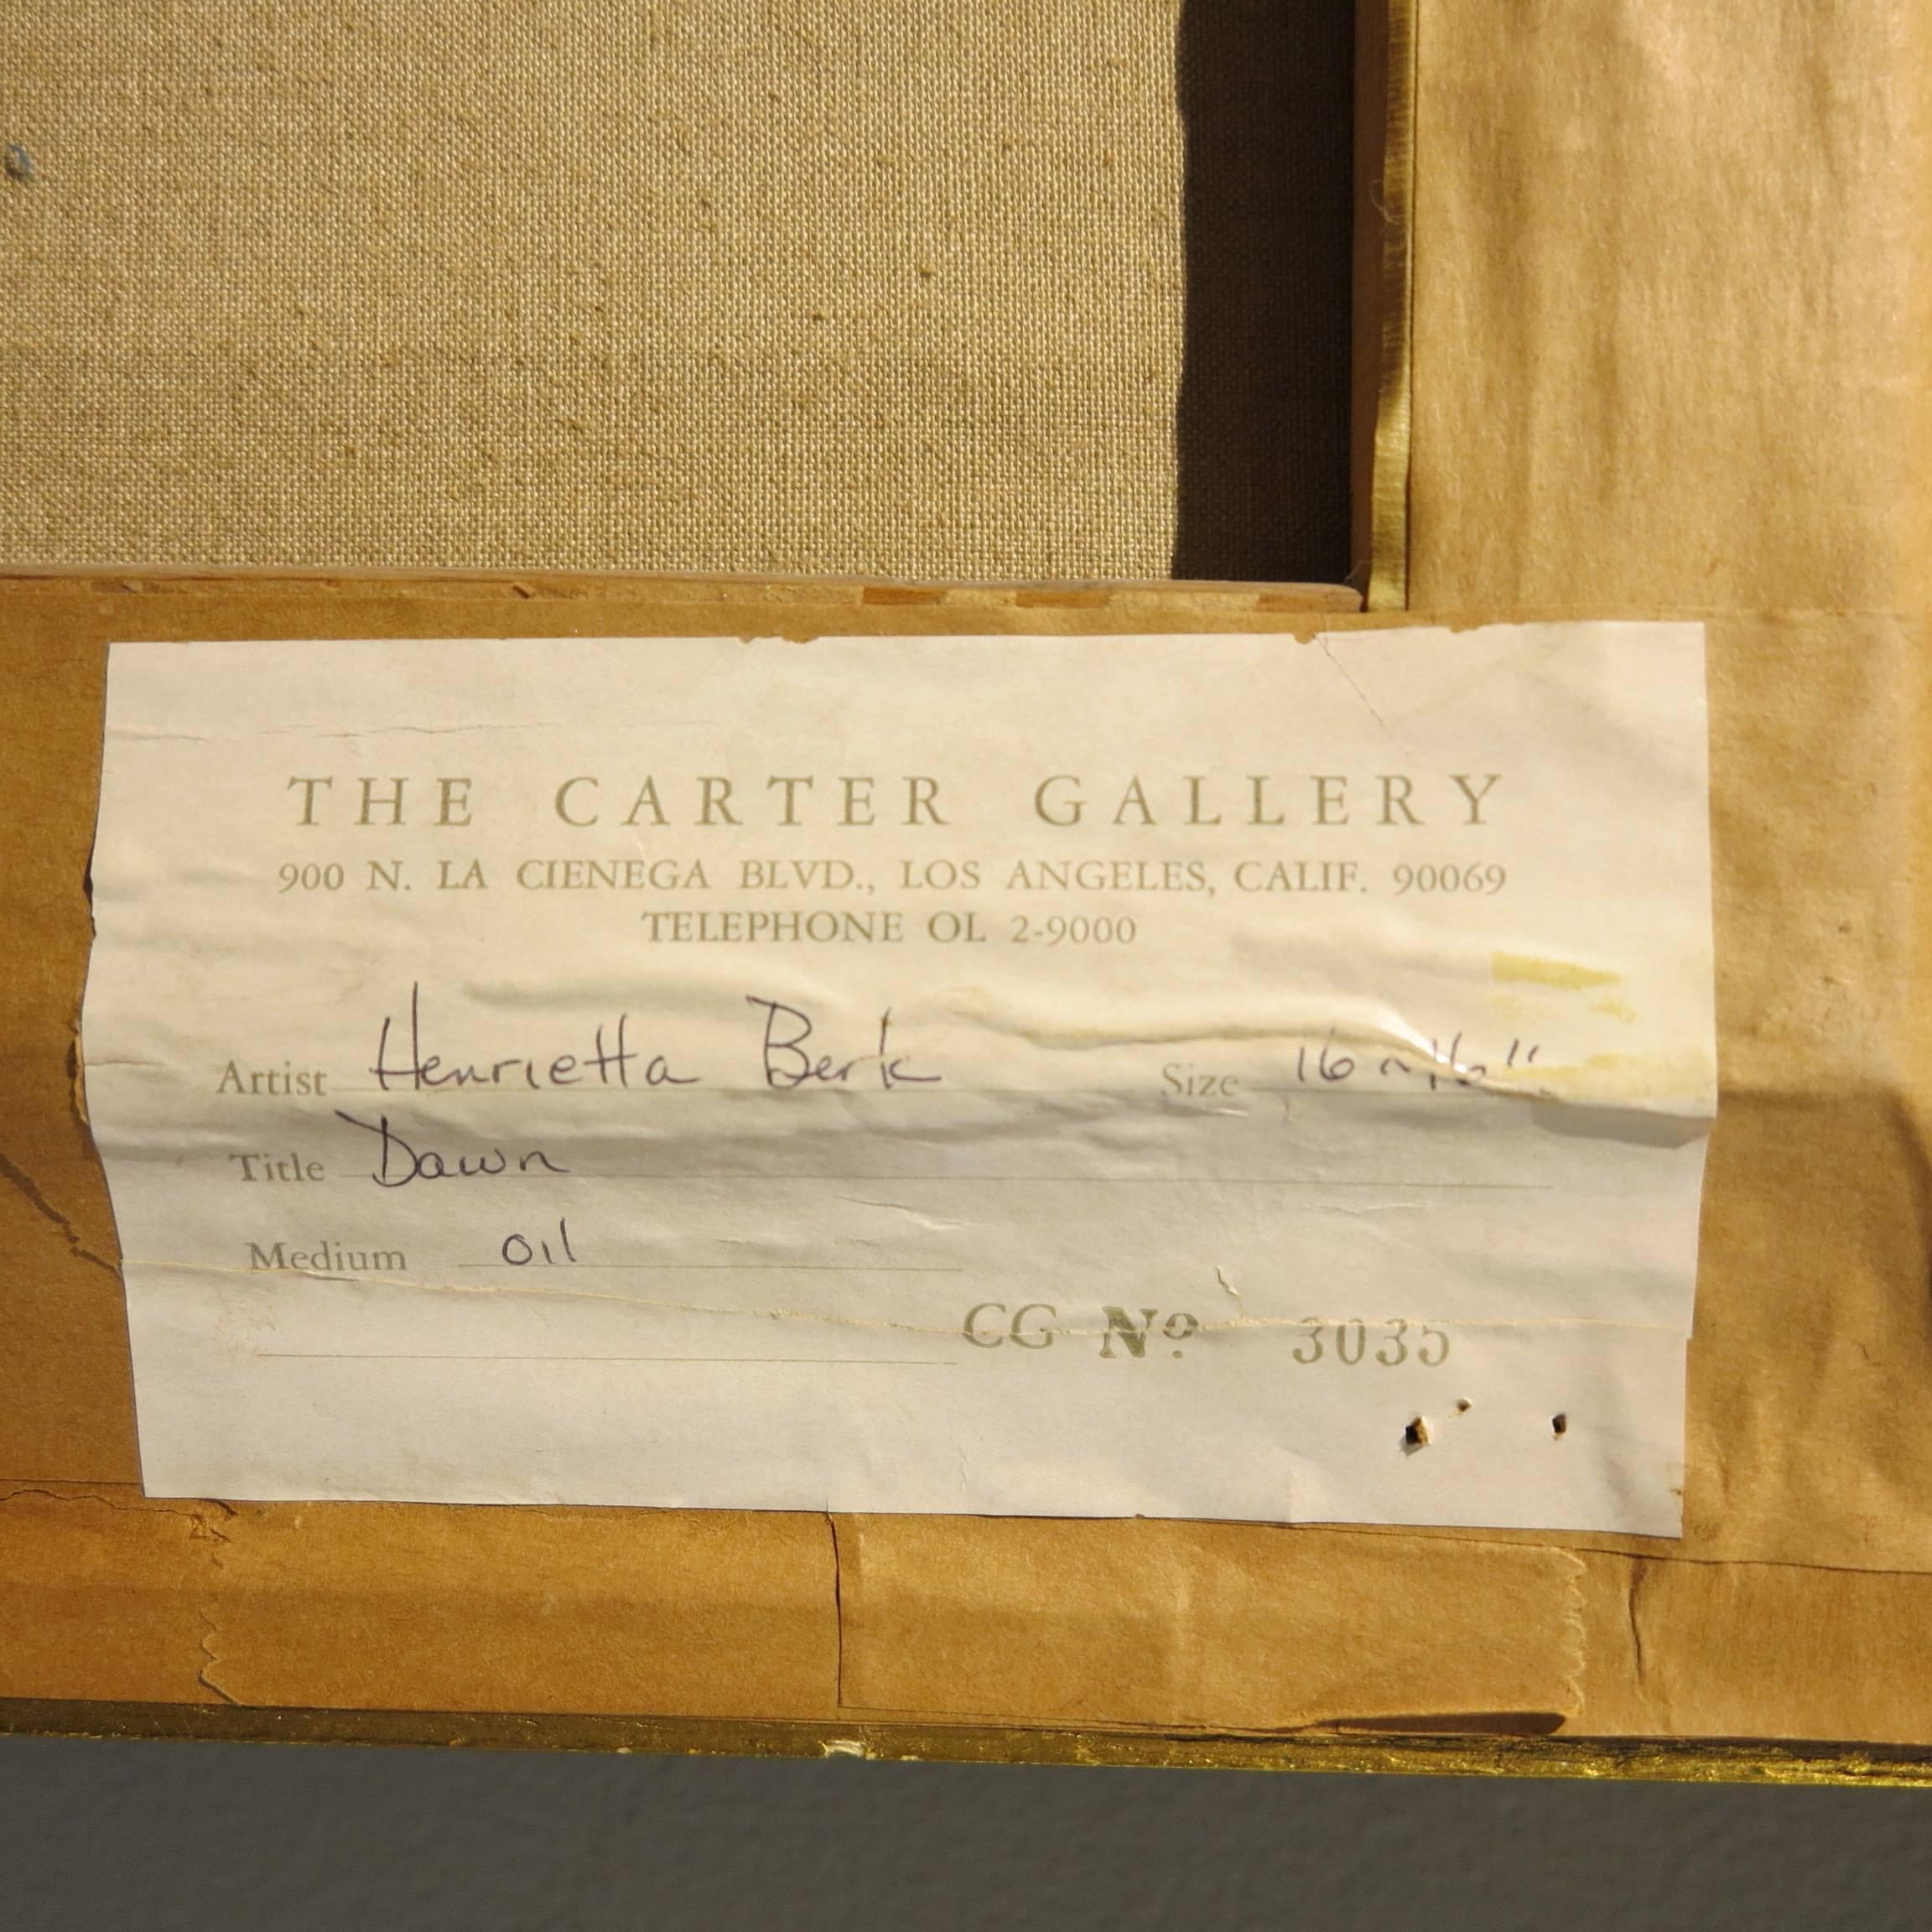 THE CARTER GALLERY
900 N. LA CIENEGA BLVD., LOS ANGELES, CALIF. 90069
TELEPHONE OL 2-9000
Artist Henrietta Berk Size 16 x 16"
Title Dawn
Medium oil
CG Nº 3035